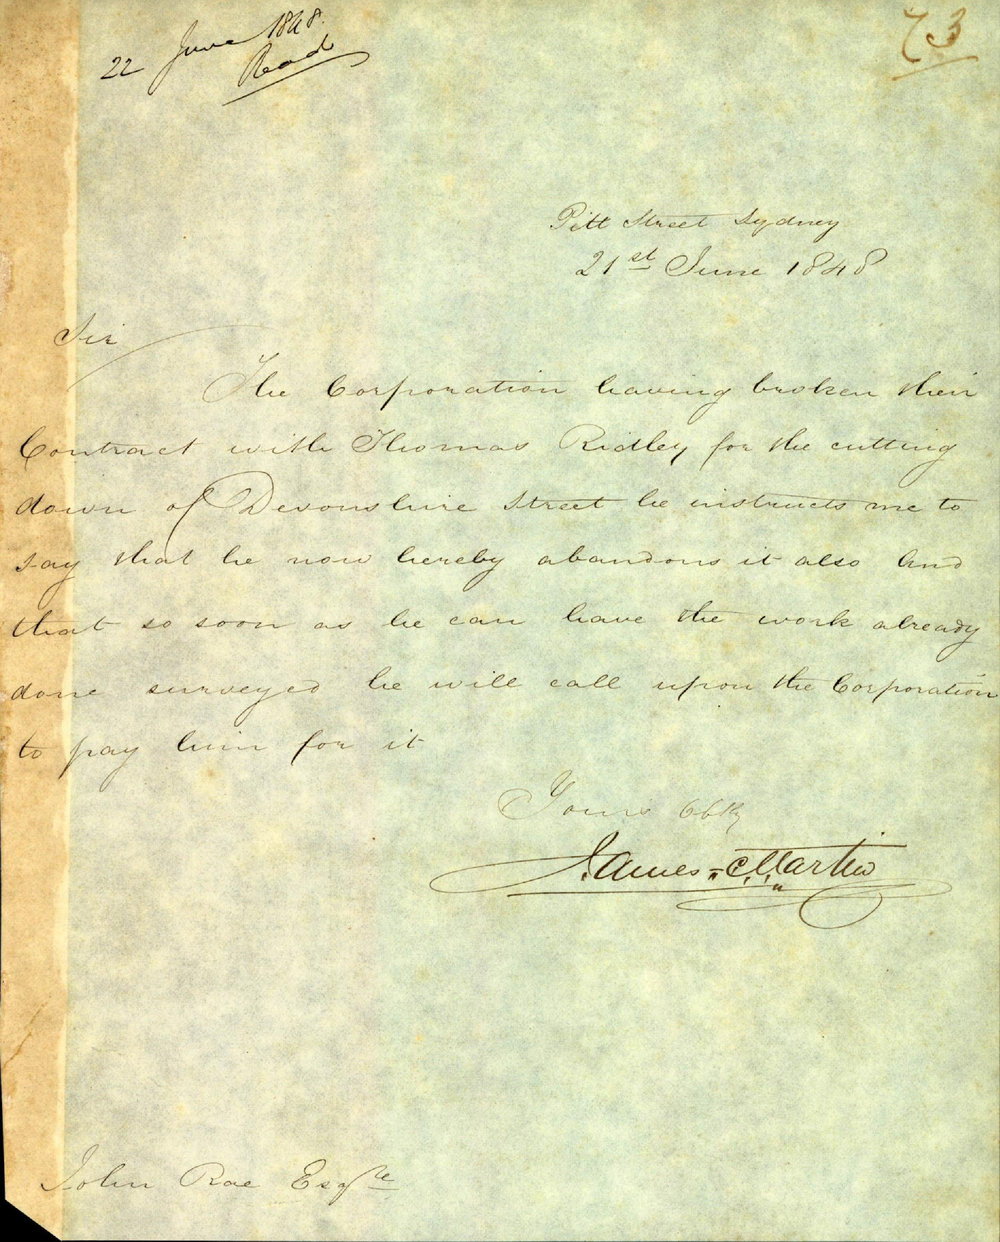 22 June 1848.
Read
73
Pitt Street Sydney
21st June 1848
Sir
The Corporation having broken their
Contract with Thomas Ridley for the cutting
down of Devonshire Street he instructs me to
say that he now hereby abandons it also And
that so soon as he can have the work already
done surveyed he will call upon the Corporation
to pay him for it
Yours Obly
James Martin
John Rae Esqre